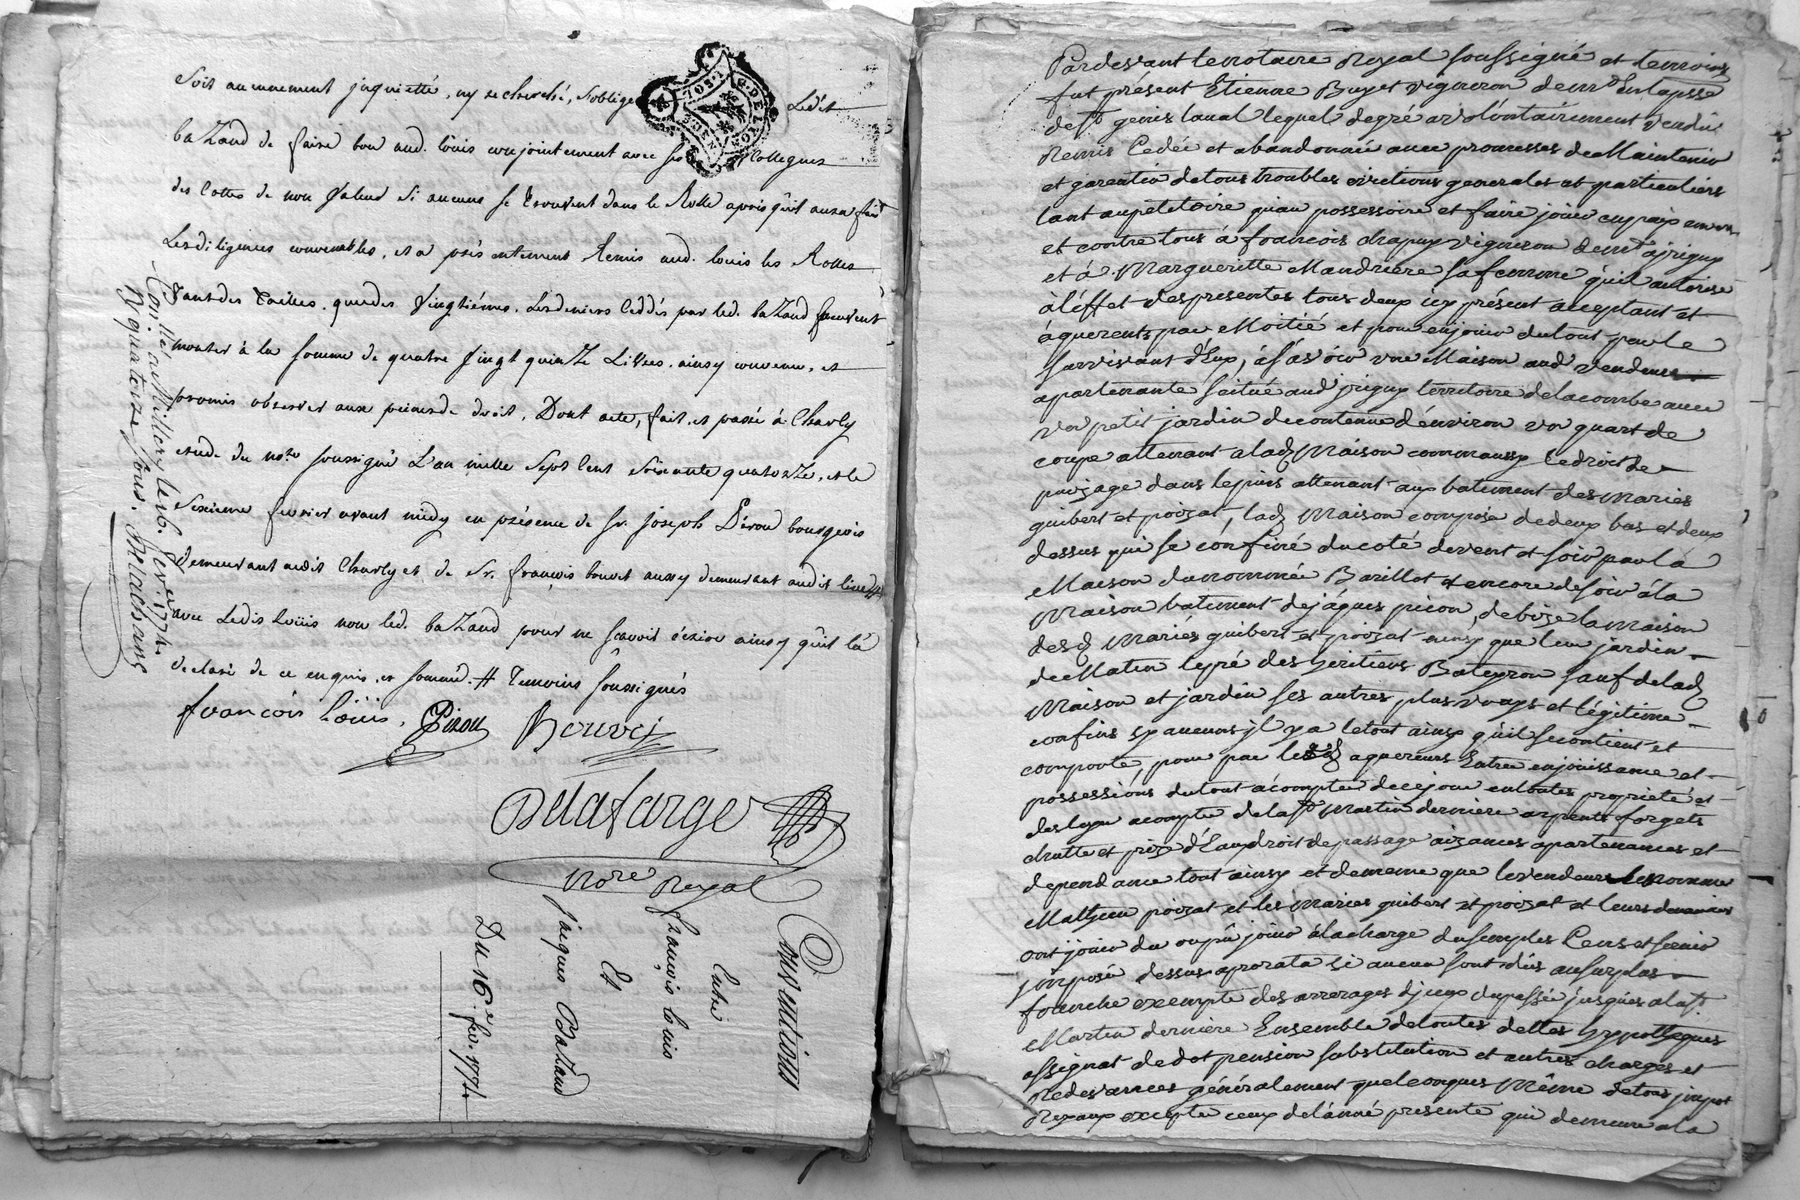 Soit aucunement inquietté, ny recherché, s'oblige Ledit
baZand de faire bon aud. loüis conjointement avec ses Collegues
des Cottes de non Valeur si aucune se trouvent dans le Rolle après qu'il aura fait
Les diligences convenables, et a présentement Remis aud. louis les Rolles
tant des tailles, que des Vingtiémes, Les deniers Ceddés par led. baZand
monter à la somme de quatre Vingt quinZe Livres, ainsy convenu, et
promis observer aux peines de droit, Dont acte, fait et passé à Charly
etude du nore soussigné L'an mille Sept Cent Soixante quatorZe, et le
Seizieme fevrier avant midy en présence de Sr. joseph Pérou bourgeois
Demeurant audit Charly et de Sr. françois bouvet aussy demeurant audit lieu
avec Ledit loüis non led. baZand pour ne sçavoir écrire ainsy qu'il l'à
declaré de ce enquis et sommé. # Temoins soussignés
françois loüis. Pérou Bouvet
Delafarge
nore Royal
Con.lé a Millery le 16. fevrier 1774.
R quatorze sous.
Conventions
Entre
françois louis
Et
jacques BaZand
Du 16 fev. 1774
G. DE LYON
Pardevant le notaire Royal soussigné et temoins
fut présent Etienne Buyet vigneron demt
de St genis laval lequel de gré a volontairement vendu
Remis Cedée et abandonnée avec promesses de Maintenir
et garentir de tous troubles evictions generales et particuliers
tant au petitoire qu'au possessoire et faire jouir en paix envers
et contre tous à françois chapuy vigneron demt a jrigny
et á Margueritte Mandriere sa femme qu'il autorise
à l'éffet des presentes tous deux icy présent acceptant et
áquerents par Moitié et pour en jouir du tout par le
survivant d'Eux, áscavoir une Maison aud vendeur
apartenante scitué aud jrigny territoire de la combe avec
un petit jardin de contenue d'environ un quart de
coupe attenant a lad Maison comm'aussy le droit de
puizage dans le puis attenant aux batiment des mariés
guibert et poizat, lad Maison compose de deux bas et deux
dessus qui se confine du coté de vent et soir par la
Maison du nommée Barillot & encore de soir á la
Maison batiment de jáques picon, de bize la maison
desd Mariés guibert et poizat ainsy que leur jardin
de Matin le pré des heritiers Bateyron sauf de lad
Maison et jardin ses autres plus vrays et légitime
confins sy aucuns il y a le tout ainsy qu'il se contient et
comporte, pour par lesd aquereurs Entrer en jouissance et
possessions du tout á compter de ce jour en toutes proprieté et
des loyer a compter de la St Martin derniere
chutte et prize d'Eau droit de passage aizances apartenances et
dependance tout ainsy et de meme que le vendeur
Mathieu poizat et les Mariés guibert et poizat et leurs devanciers
ont jouir du ou pû jouir á la charge du simples Cens et servis
jmposée dessus a prorata si aucun sont dus au surplus
franche exempte des arrerages d'jceux du passée jusques a la St
Martin derniere Ensemble de toutes dettes hyppothèques
assignat de dot pension substitution et autres charges et
Redevances généralement quelconques Même de tous jmpot
Royaux excepté ceux de l'anné presente qui demeure a la